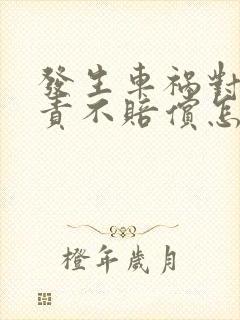 發生車禍對
責不賠償怎
橙年歲月